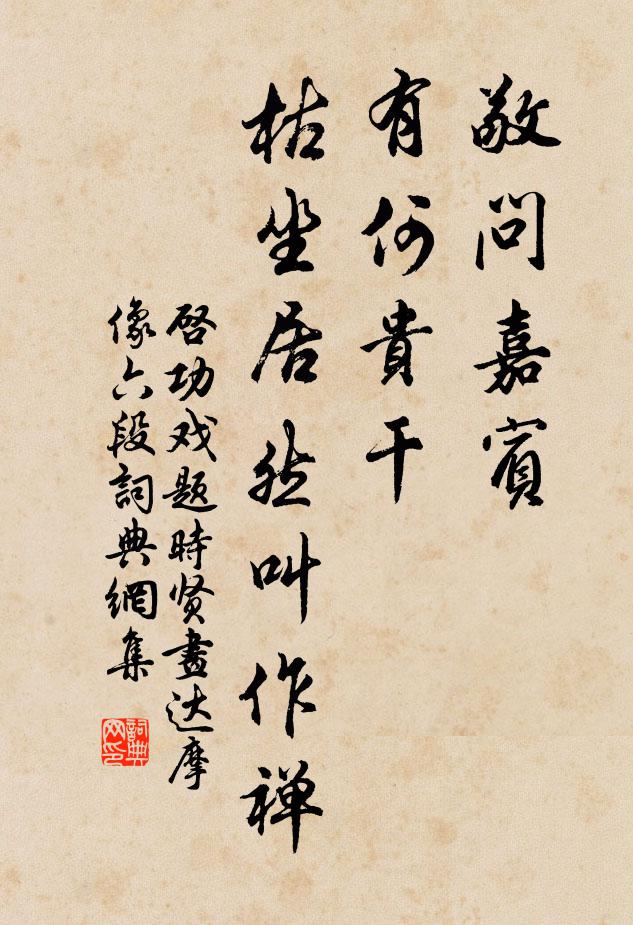 敬问嘉賓
有何貴干
枯坐居然叫作禅
啓功戏题時贤畫达摩
像六段詞典網集
詞典网印